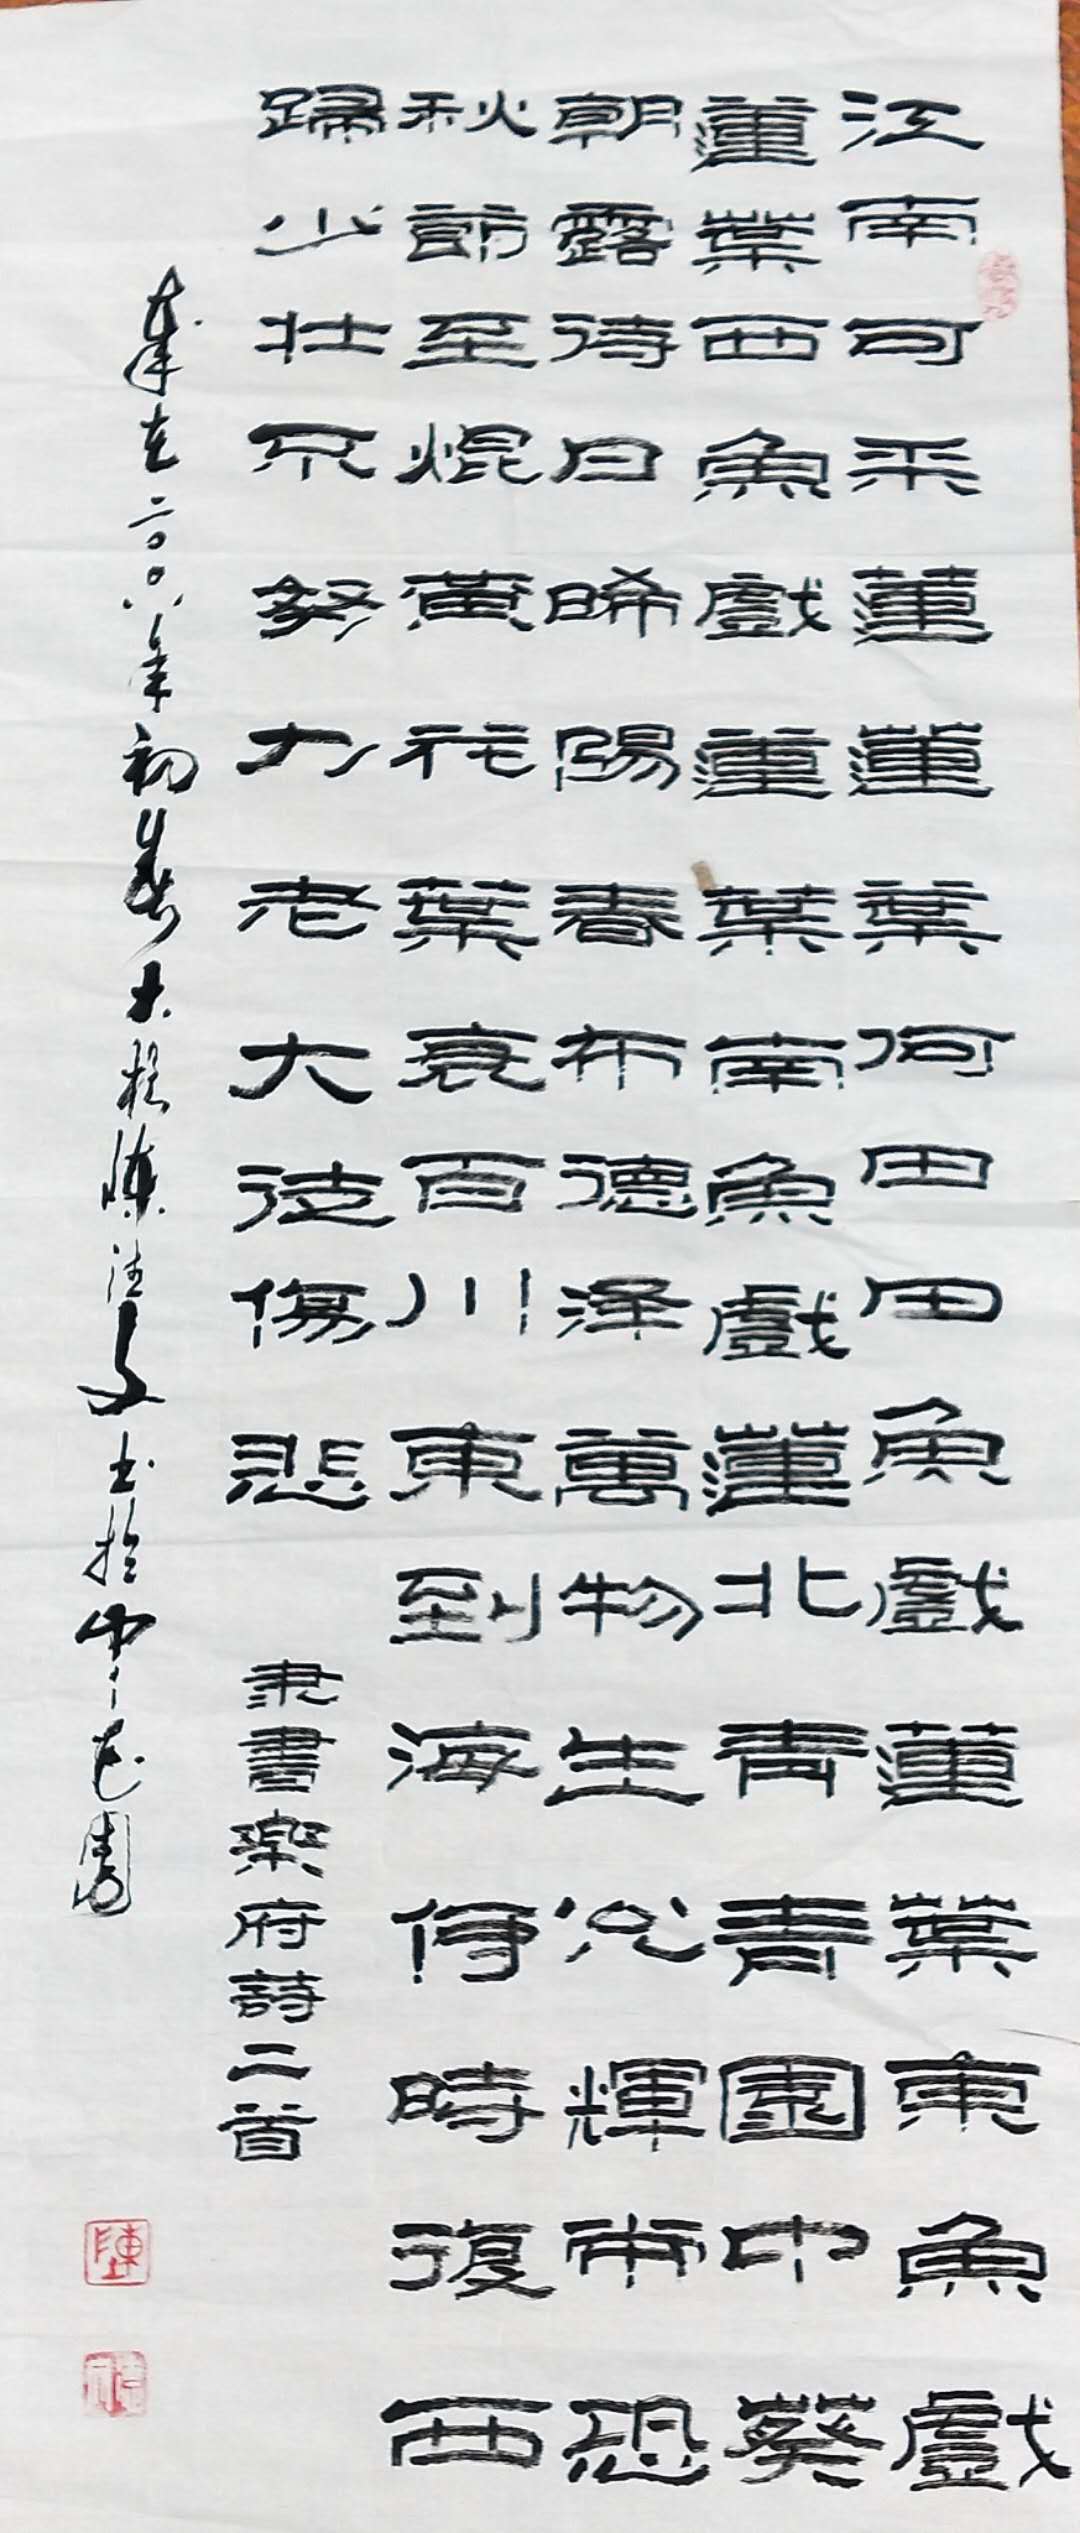 江南可采蓮蓮葉何田田魚戲蓮葉東魚戲
蓮葉西魚戲蓮葉南魚戲蓮北青青園中葵
朝露待日晞陽春布德澤萬物生光輝常恐
秋節至焜黃花葉衰百川東到海何時復西
歸少壯不努力老大徒傷悲
隸書樂府詩二首
歲在二〇〇八年初春
陳